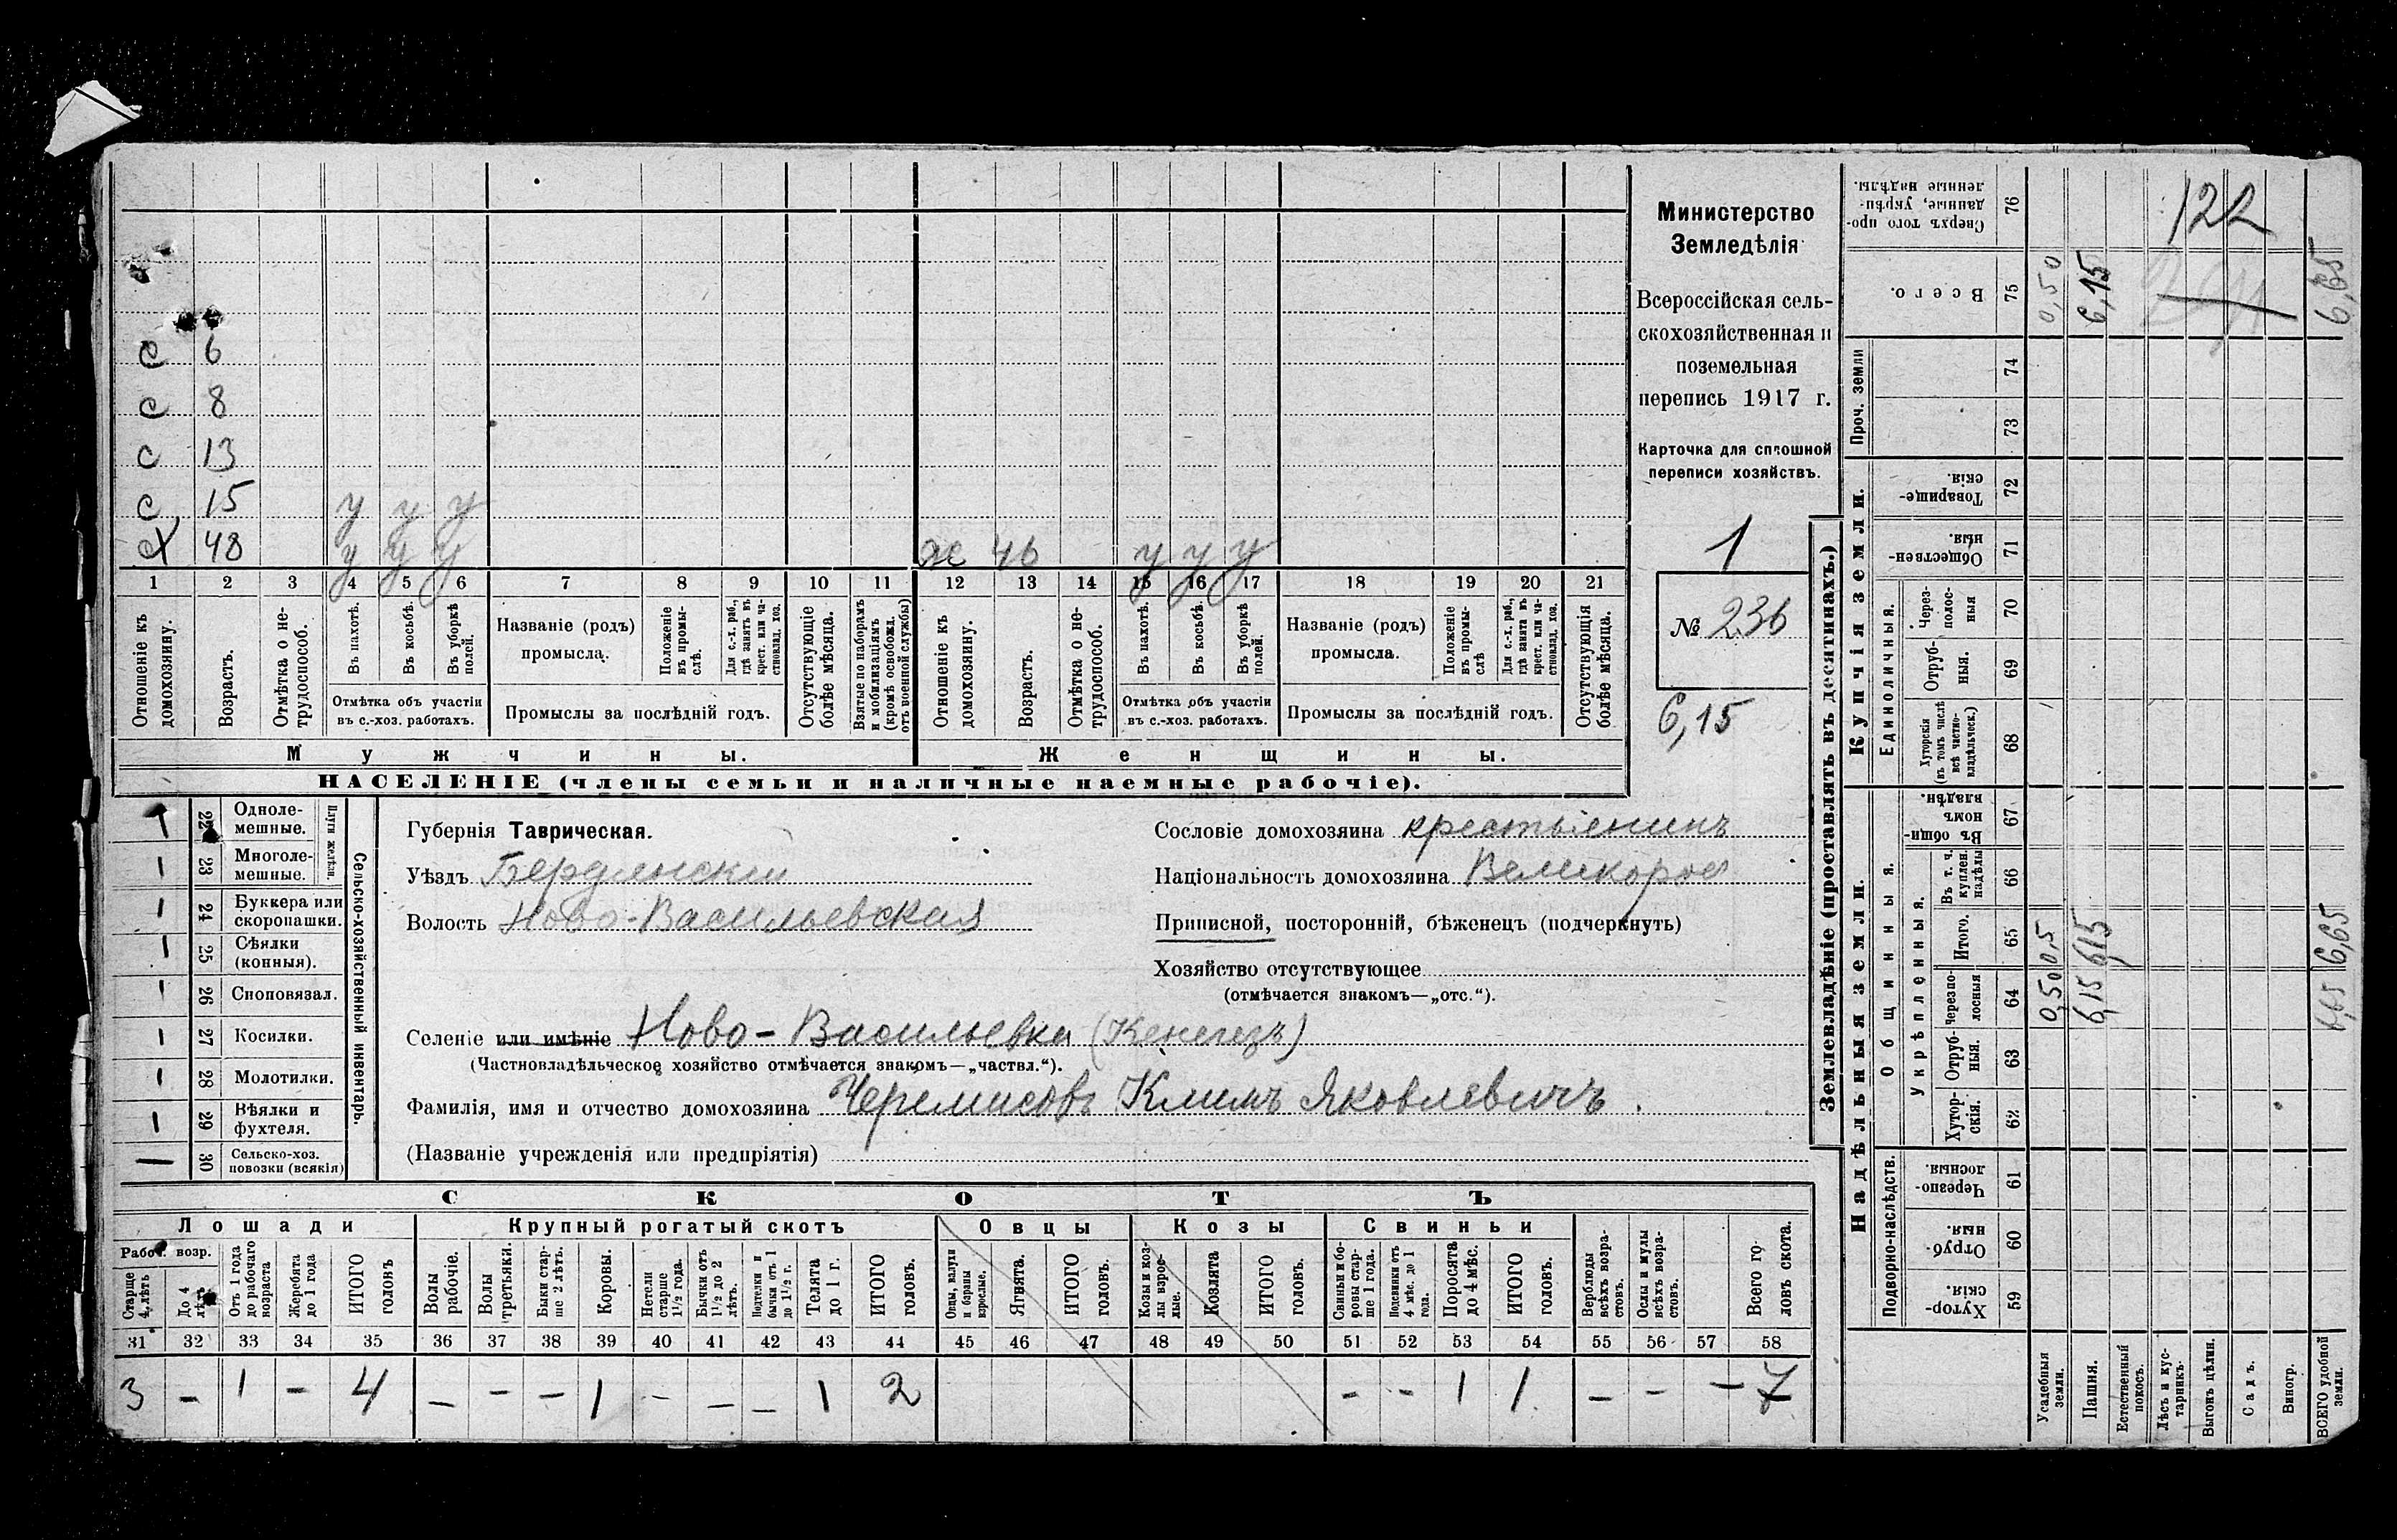 с 6
с 8
с 13
с 15 у у у
х 48 у у у ж 46 у у у
1 2 3 4 5 6 7 8 9 10 11 12 13 14 15 16 17 18 19 20 21
Отношеніе къ домохозяину.
Возрастъ.
Отмѣтка о нетрудоспособ.
Въ пахотѣ.
Въ косьбѣ.
Въ уборкѣ полей.
Отмѣтка объ участіи
въ с.-хоз. работахъ.
Названіе (родъ)
промысла.
Положеніе въ промыслѣ.
Для с.-х. раб., гдѣ занятъ въ крест. или частновлад. хоз.
Промыслы за послѣдній годъ.
Отсутствующіе болѣе мѣсяца.
Взятые по наборамъ и мобилизаціямъ (кромѣ освобожд. отъ военной службы)
Отношеніе къ домохозяину.
Возрастъ.
Отмѣтка о нетрудоспособ.
Въ пахотѣ.
Въ косьбѣ.
Въ уборкѣ полей.
Отмѣтка объ участіи
въ с.-хоз. работахъ.
Названіе (родъ)
промысла.
Положеніе въ промыслѣ
Для с.-х. раб., гдѣ занята въ крест. или частновлад. хоз.
Промыслы за послѣдній годъ.
Отсутствующія болѣе мѣсяца.
Мужчины. Женщины.
НАСЕЛЕНІЕ (члены семьи и наличные наемные рабочіе).
Министерство
Земледѣлія
Всероссійская сель-
скохозяйственная и
поземельная
перепись 1917 г.
Карточка для сплошной
переписи хозяйствъ.
1
№ 236
6,15
22 Одноле-
мешные.
23 Многоле-
мешные.
Плуги желѣзн.
24 Буккера или
скоропашки.
25 Сѣялки
(конныя).
26 Сноповязал.
27 Косилки.
28 Молотилки.
29 Вѣялки и
фухтеля.
30 Сельско-хоз.
повозки (всякія)
Сельско-хозяйственный инвентарь.
Губернія Таврическая.
Уѣздъ Бердянскій
Волость Ново-Васильевская
Сословіе домохозяина крестьянинъ
Національность домохозяина Великорос
Приписной, посторонній, бѣженецъ (подчеркнуть)
Хозяйство отсутствующее
(отмѣчается знакомъ—„отс.“).
Селеніе или имѣніе Ново-Васильевка (Кенегезъ)
(Частновладѣльческое хозяйство отмѣчается знакомъ—„частвл.“).
Фамилія, имя и отчество домохозяина Черемисовъ Климъ Яковлевичъ.
(Названіе учрежденія или предпріятія)
СКОТЪ
Лошади Крупный рогатый скотъ Овцы Козы Свиньи
Рабоч. возр.
Старше 4 лѣтъ
До 4 лѣтъ
Отъ 1 года до рабочаго возраста
Жеребята до 1 года
ИТОГО головъ
Волы рабочіе.
Волы третьяки.
Быки старше 2 лѣтъ.
Коровы.
Нетели старше 1½ года.
Бычки отъ 1½ до 2 лѣтъ.
Подтелки и бычки отъ 1 до 1½ г.
Телята до 1 г.
ИТОГО головъ.
Овцы, валухи и бараны взрослые.
Ягнята.
ИТОГО головъ.
Козы и козлы взрослые.
Козлята
ИТОГО головъ.
Свиньи и боровы старше 1 года.
Подсвинки отъ 4 мѣс. до 1 года.
Поросята до 4 мѣс.
ИТОГО головъ.
Верблюды всѣхъ возрастовъ.
Ослы и мулы всѣхъ возрастовъ.
Всего головъ скота.
31 32 33 34 35 36 37 38 39 40 41 42 43 44 45 46 47 48 49 50 51 52 53 54 55 56 57 58
3 – 1 – 4 – – – 1 – – – 1 2 – – 1 1 – – – 7
Землевладѣніе (проставлять въ десятинахъ.)
Купчія земли.
Надѣльныя земли.
Сверхъ того проданные, укрѣпленные надѣлы. 76
Всего. 75 0,50 6,15 6,65
122
Проч. земли 74 73
Товарищескія 72
Общественныя. 71
Единоличныя.
Черезполосныя 70
Отрубныя. 69
Хуторскія (въ томъ числѣ всѣ частновладѣльческ.) 68
Общинныя.
Въ общинномъ владѣн. 67
Укрѣпленныя.
Въ т. ч. куплен. надѣлы 66
Итого. 65 0,5 6,15 6,65
Черезполосныя 64 0,50 6,15 6,65
Отрубныя. 63
Хуторскія. 62
Подворно-наслѣдств.
Черезполосныя. 61
Отрубныя 60
Хуторскія 59
Усадебныя земли.
Пашня.
Естественный покосъ.
Лѣсъ и кустарникъ.
Выгонъ цѣлин.
Садъ.
Виногр.
ВСЕГО удобной земли.